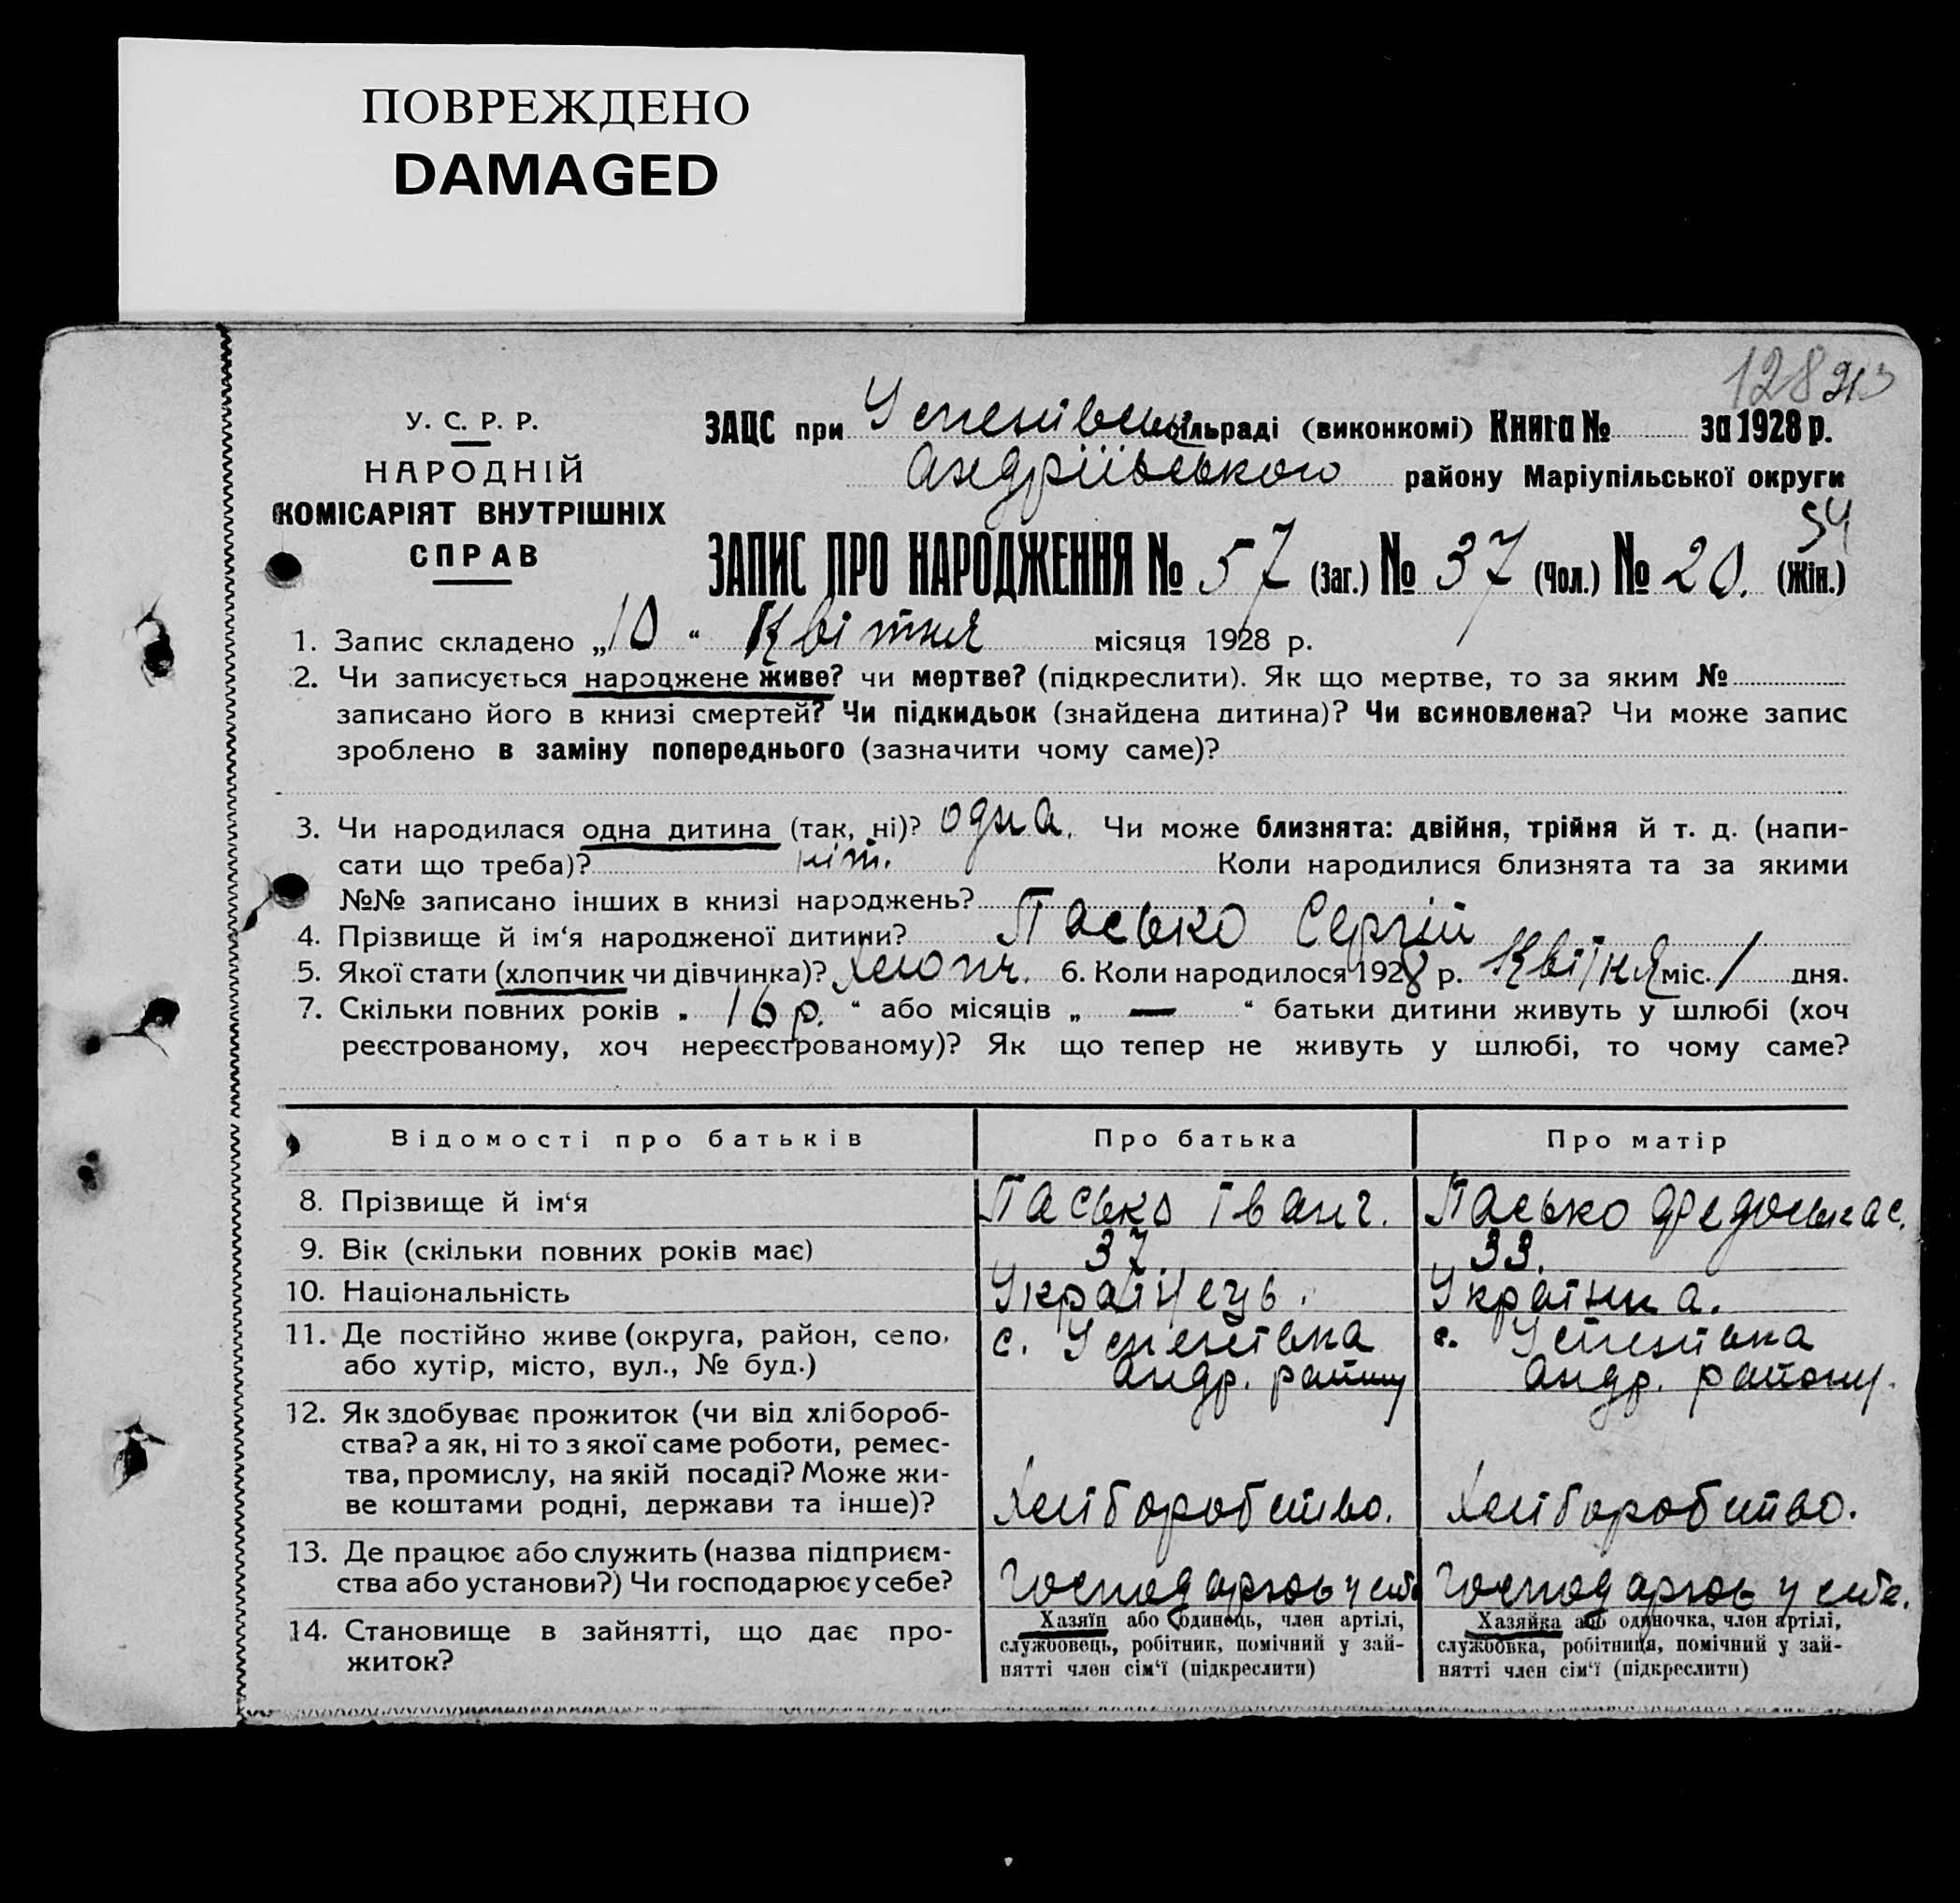 ПОВРЕЖДЕНО
DAMAGED
128
У. С. Р. Р.
НАРОДНІЙ
КОМІСАРІЯТ ВНУТРІШНІХ
СПРАВ
ЗАЦС при Успенівськ сільраді (виконкомі) Книга № за 1928 р.
Андріївського району Маріупільської округи
54
ЗАПИС ПРО НАРОДЖЕННЯ № 57 (Заг.) № 37 (Чол.) № 20. (Жін.)
1. Запис складено „10“ Квітня місяця 1928 р.
2. Чи записується народжене живе? чи мертве? (підкреслити). Як що мертве, то за яким №
записано його в книзі смертей? Чи підкидьок (знайдена дитина)? Чи всиновлена? Чи може запис
зроблено в заміну попереднього (зазначити чому саме)?
3. Чи народилася одна дитина (так, ні)? одна. Чи може близнята: двійня, трійня й т. д. (напи-
сати що треба)? ніт. Коли народилися близнята та за якими
№№ записано інших в книзі народжень?
4. Прізвище й ім‘я народженої дитини? Пасько Сергій
5. Якої стати (хлопчик чи дівчинка)? Хлопч. 6. Коли народилося 1928 р. Квітня міс. 1 дня.
7. Скільки повних років „ 16 р. “ або місяців „ — “ батьки дитини живуть у шлюбі (хоч
реєстрованому, хоч нереєстрованому)? Як що тепер не живуть у шлюбі, то чому саме?
Відомості про батьків Про батька Про матір
8. Прізвище й ім‘я Пасько Іван г. Пасько Федоська с.
9. Вік (скільки повних років має) 37. 33.
10. Національність Українець. Українка.
11. Де постійно живе (округа, район, село, с. Успенівка с. Успенівка
або хутір, місто, вул., № буд.) Андр. району Андр. району.
12. Як здобуває прожиток (чи від хлібороб-
ства? а як, ні то з якої саме роботи, ремес-
тва, промислу, на якій посаді? Може жи-
ве коштами родні, держави та інше)? Хліборобство. Хліборобство.
13. Де працює або служить (назва підприєм-
ства або установи?) Чи господарює у себе? Господарює у себе Господарює у себе.
14. Становище в зайнятті, що дає про-
житок?
Хазяїн або одинець, член артілі,
службовець, робітник, помічний у зай-
нятті член сім‘ї (підкреслити)
Хазяйка або одиночка, член артілі,
службовка, робітниця, помічний у зай-
нятті член сім‘ї (підкреслити)